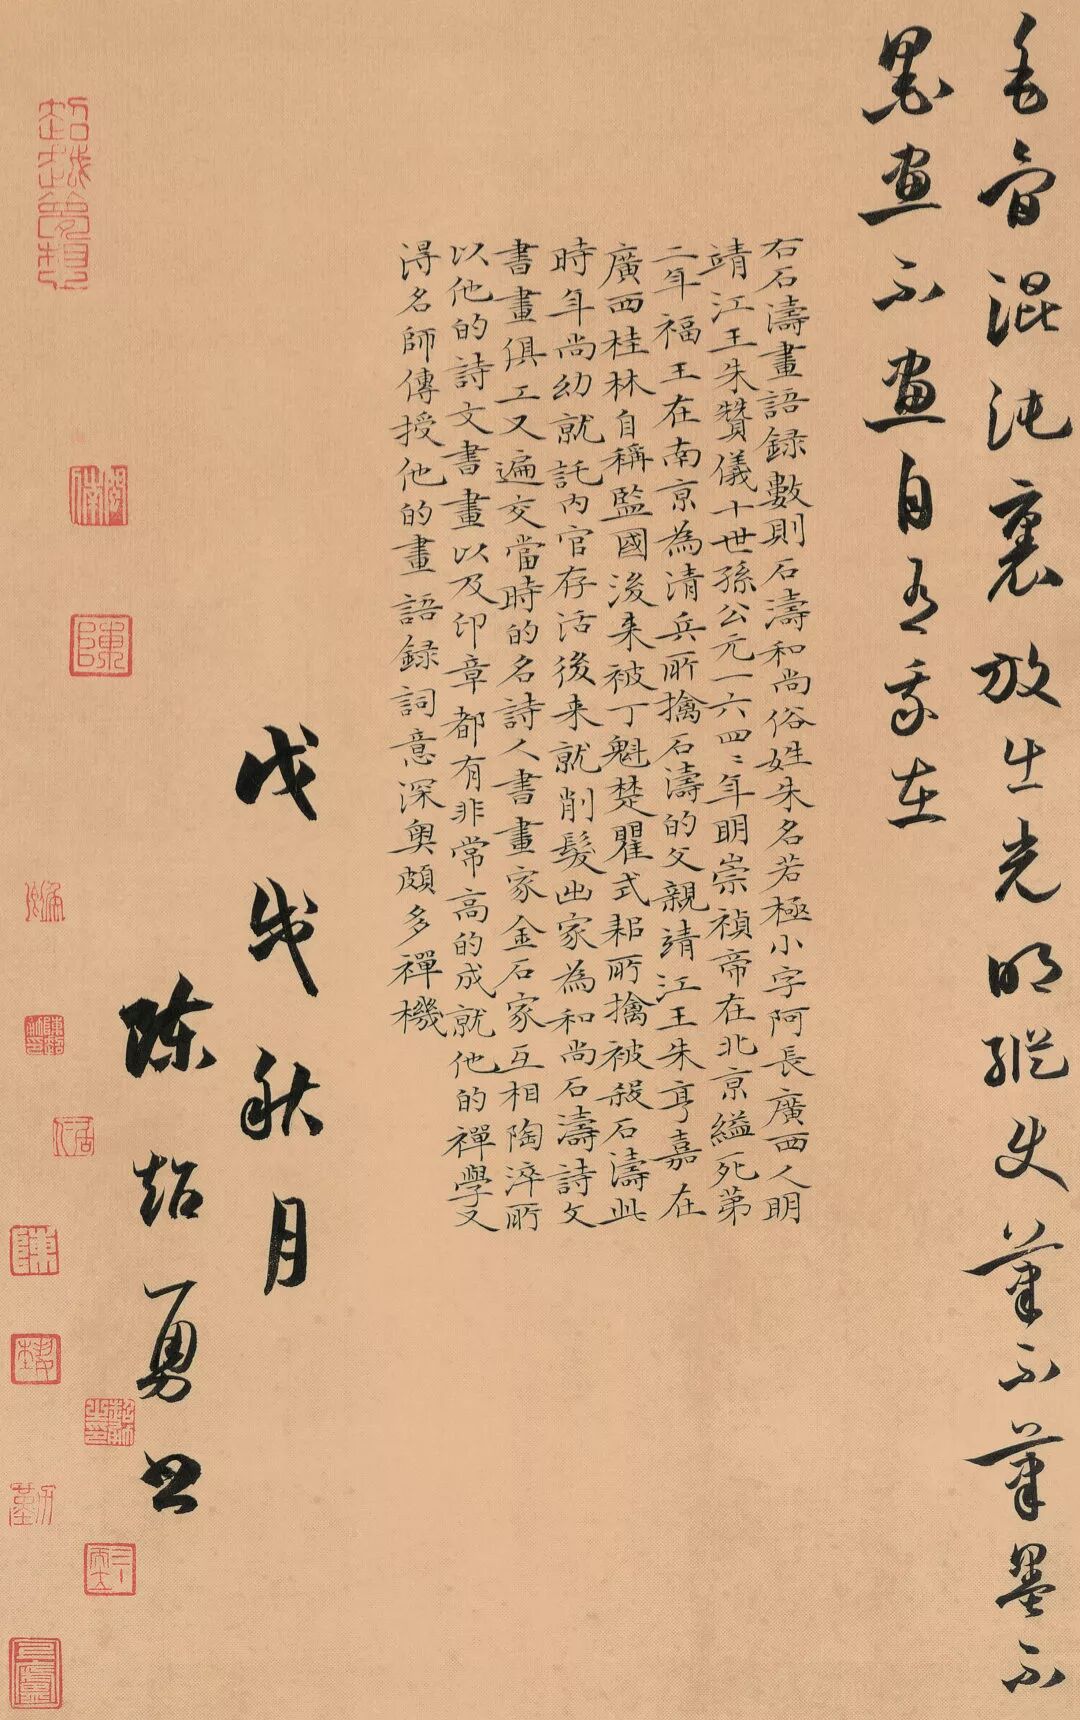 毛骨混沌裏放出光明縱使筆不筆墨不
墨畫不畫自有我在
右石濤畫語録數則石濤和尚俗姓朱名若極小字阿長廣西人明
靖江王朱贊儀十世孫公元一六四〻年明崇禎帝在北京縊死第
二年福王在南京為清兵所擒石濤的父親靖江王朱亨嘉在
廣西桂林自稱監國後来被丁魁楚瞿式耜所擒被殺石濤此
時年尚幼就託内官存活後来就削髮出家為和尚石濤詩文
書畫俱工又遍交當時的名詩人書畫家金石家互相陶淬所
以他的詩文書畫以及印章都有非常高的成就他的禪學又
得名師傳授他的畫語録詞意深奥頗多禪機
戊戌秋月
陈超勇书
超越夢想
陳
陳